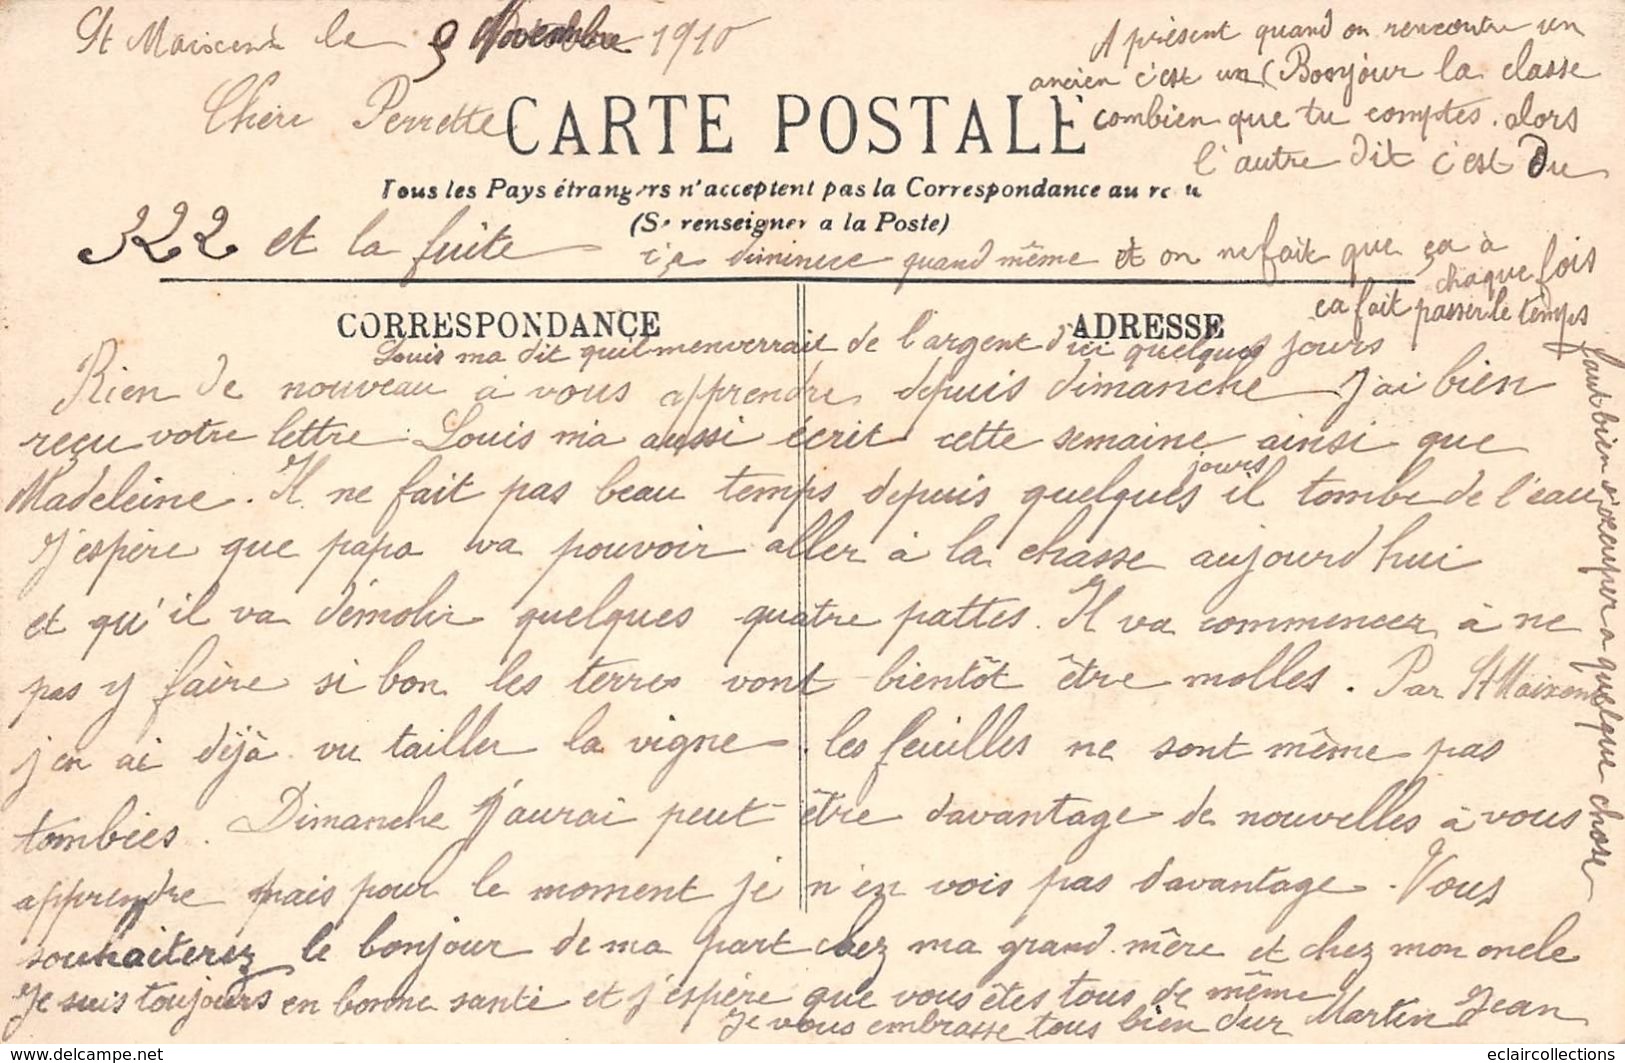 St Maixent le 9 Novembre 1910
Chère Perrette
A présent quand on rencontre un
ancien c'est un (Bonjour la classe
combien que tu comptes. alors
l'autre dit c'est du
CARTE POSTALE
Tous les Pays étrangers n'acceptent pas la Correspondance au recu
(Se renseigner a la Poste)
322 et la fuite
ça diminue quand même et on ne fait que ça à
chaque fois
ça fait passer le temps
faut bien s'occuper a quelque chose
CORRESPONDANCE
ADRESSE
Louis ma dit quil menverrait de l'argent d'ici quelques jours
Rien de nouveau à vous apprendre depuis dimanche J'ai bien
reçu votre lettre. Louis m'a aussi écrit cette semaine ainsi que
Madeleine. Il ne fait pas beau temps depuis quelques jours il tombe de l'eau
J'espère que papa va pouvoir aller à la chasse aujourd'hui
et qu'il va démolir quelques quatre pattes. Il va commencer à ne
pas y faire si bon les terres vont bientôt être molles. Par St Maixent
j'en ai déjà vu tailler la vigne. les feuilles ne sont même pas
tombées. Dimanche j'aurai peut-être davantage de nouvelles à vous
apprendre mais pour le moment je n'en vois pas davantage. Vous
souhaiterez le bonjour de ma part chez ma grand mère et chez mon oncle
Je suis toujours en bonne santé et j'espère que vous êtes tous de même
Je vous embrasse tous bien dur Martin Jean
eclaircollections
www.delcampe.net